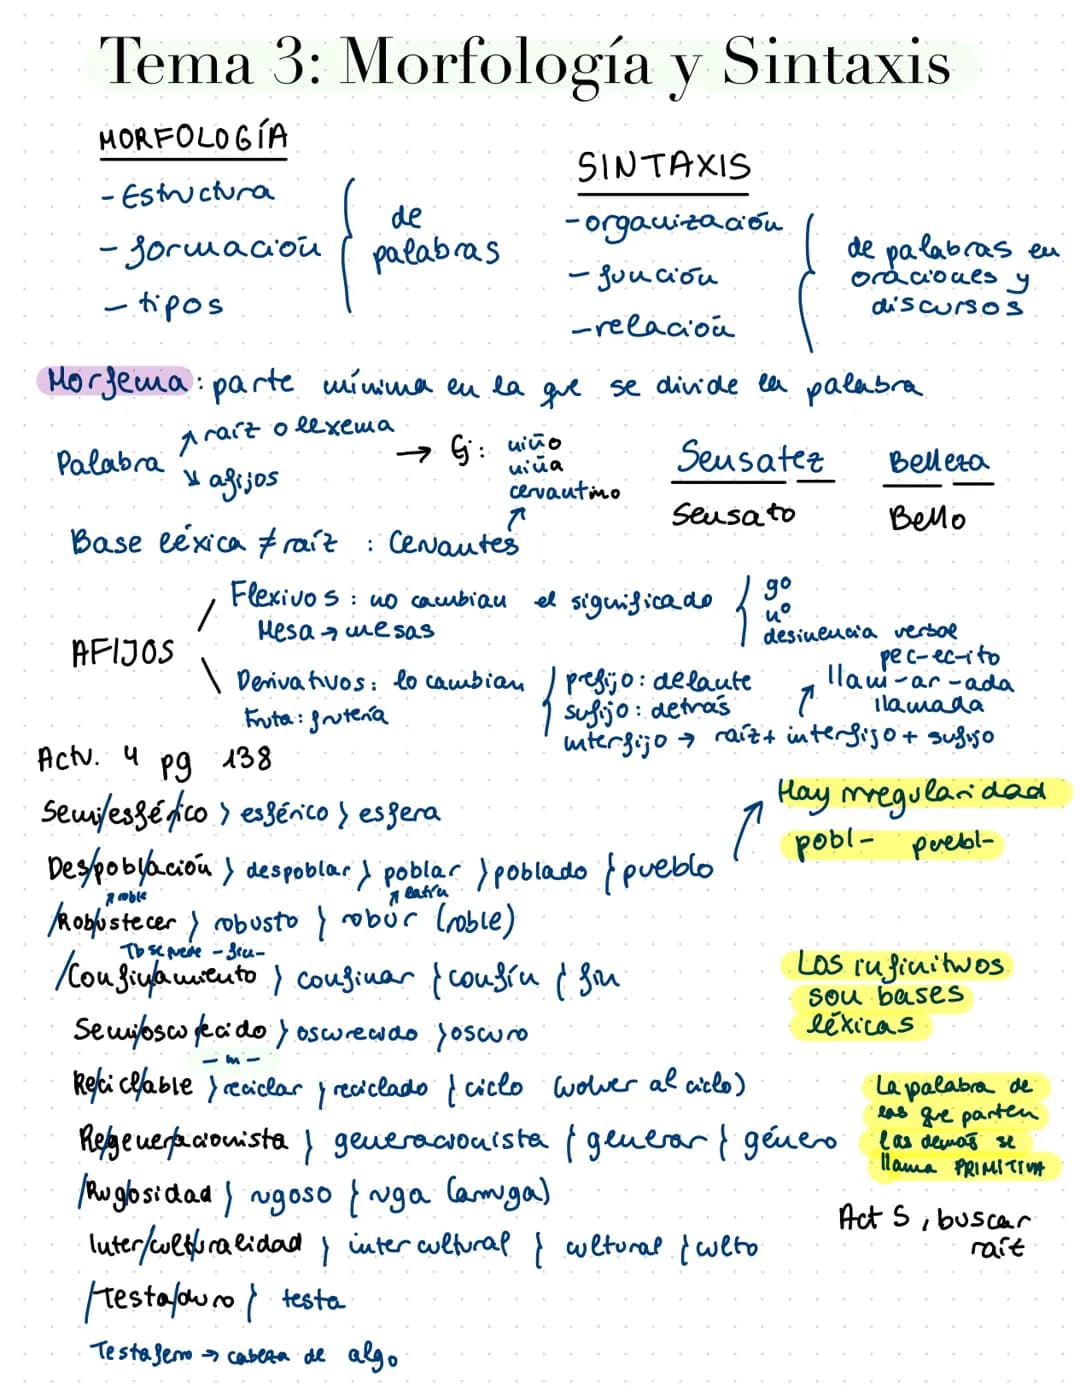 Tema 3: Morfología y Sintaxis
MORFOLOGÍA
- Estructura
- formación
- tipos
de
palabras
SINTAXIS
- organización
- función
- relación
de palabras en
oraciones y
discursos
Morfema: parte mínima en la que se divide la palabra
Palabra
↗ raíz o lexema
↘ afijos
→ Ej: niño
niña
cervantino
Sensatez
Sensato
Belleza
Bello
Base léxica ≠ raíz : Cervantes
AFIJOS
Flexivos : no cambian el significado
Mesa → mesas
gº
nº
desinencia verbal
Derivativos: lo cambian
Fruta: frutería
prefijo: delante
sufijo: detrás
interfijo → raíz + interfijo + sufijo
pec-ec-ito
llam-ar-ada
llamada
Actv. 4 pg 138
Semi/esfér/ico > esférico > esfera
Des/pobl/ación > despoblar > poblar > poblado > pueblo
Hay irregularidad
pobl- puebl-
↗ roble
↗ latín
/Robustecer > robusto > robur (roble)
Tb se puede - fin -
/Confinamiento > confinar > confín > fin
Los infinitivos
son bases
léxicas
Semi/oscurecido > oscurecido > oscuro
- in -
Re/cicl/able > reciclar > reciclado > ciclo (volver al ciclo)
La palabra de
las que parten
las demás se
llama PRIMITIVA
Re/gener/acionista > generacionista > generar > género
/Rug/osidad > rugoso > ruga (arruga)
Act 5, buscar
raíz
Inter/cult/uralidad > intercultural > cultural > culto
/Testa/duro > testa
Testaferro → cabeza de algo